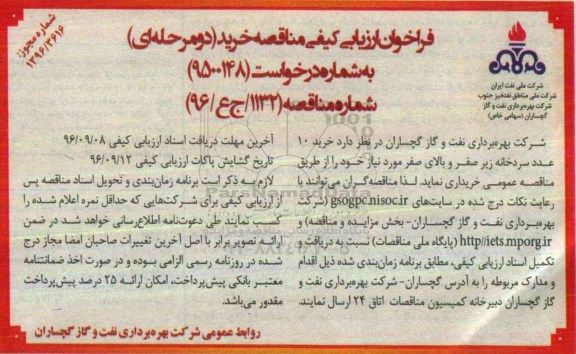 شماره مجوز:
۱۳۹۶/۳۶۱۶
فراخوان ارزیابی کیفی مناقصه خرید (دو مرحله‌ای)
به شماره درخواست (۹۵۰۰۱۴۸)
شماره مناقصه (۱۱۳۲/ج ع/۹۶)
شرکت ملی نفت ایران
شرکت ملی مناطق نفتخیز جنوب
شرکت بهره‌برداری نفت و گاز
گچساران (سهامی خاص)
شرکت بهره‌برداری نفت و گاز گچساران در نظر دارد خرید ۱۰
عدد سردخانه زیر صفر و بالای صفر مورد نیاز خود را از طریق
مناقصه عمومی خریداری نماید. لذا مناقصه‌گران می‌توانند با
رعایت نکات درج شده در سایت‌های gsogpc.nisoc.ir (شرکت
بهره‌برداری نفت و گاز گچساران- بخش مزایده و مناقصه) و
http//iets.mporg.ir (پایگاه ملی مناقصات) نسبت به دریافت و
تکمیل اسناد ارزیابی کیفی، مطابق برنامه زمان‌بندی شده ذیل اقدام
و مدارک مربوطه را به آدرس گچساران- شرکت بهره‌برداری نفت و
گاز گچساران دبیرخانه کمیسیون مناقصات اتاق ۲۴ ارسال نمایند.
آخرین مهلت دریافت اسناد ارزیابی کیفی ۹۶/۰۹/۰۸
تاریخ گشایش پاکات ارزیابی کیفی ۹۶/۰۹/۱۲
لازم به ذکر است برنامه زمان‌بندی و تحویل اسناد مناقصه پس
از ارزیابی کیفی برای شرکت‌هایی که حداقل نمره اعلام شده را
کسب نمایند طی دعوت‌نامه اطلاع‌رسانی خواهد شد در ضمن
ارائه تصویر برابر با اصل آخرین تغییرات صاحبان امضا مجاز درج
شده در روزنامه رسمی الزامی بوده و در صورت اخذ ضمانتنامه
معتبر بانکی پیش‌پرداخت، امکان ارائه ۲۵ درصد پیش‌پرداخت
مقدور می‌باشد.
روابط عمومی شرکت بهره‌برداری نفت و گاز گچساران